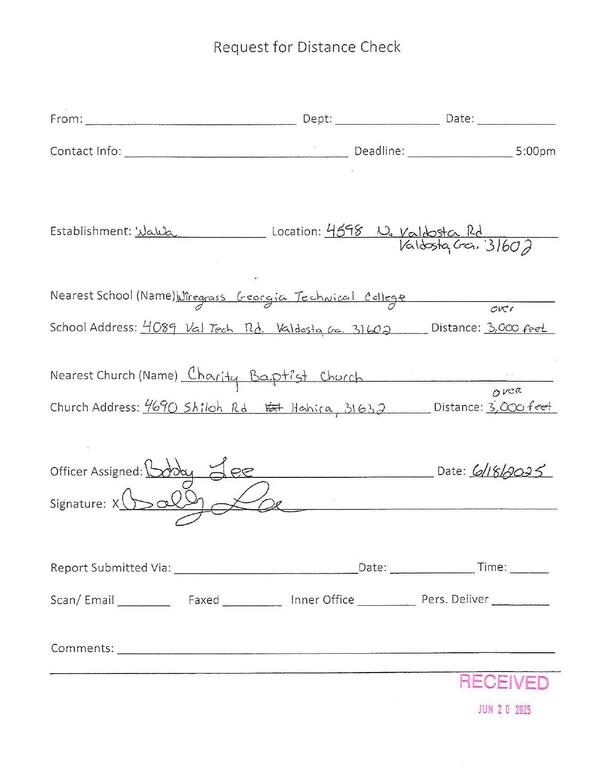 Request for Distance Check
From: Dept: Date:
Contact Info: Deadline: 5:00pm
Establishment: WaWa Location: 4598 N. Valdosta Rd
Valdosta, Ga. 31602
Nearest School (Name) Wiregrass Georgia Technical College
over
School Address: 4089 Val Tech Rd. Valdosta, Ga. 31602 Distance: 3,000 feet
Nearest Church (Name) Charity Baptist Church
over
Church Address: 4690 Shiloh Rd Hahira, 31632 Distance: 3,000 feet
Officer Assigned: Bobby Lee Date: 6/18/2025
Signature: X Bobby Lee
Report Submitted Via: Date: Time:
Scan/ Email Faxed Inner Office Pers. Deliver
Comments:
RECEIVED
JUN 20 2025